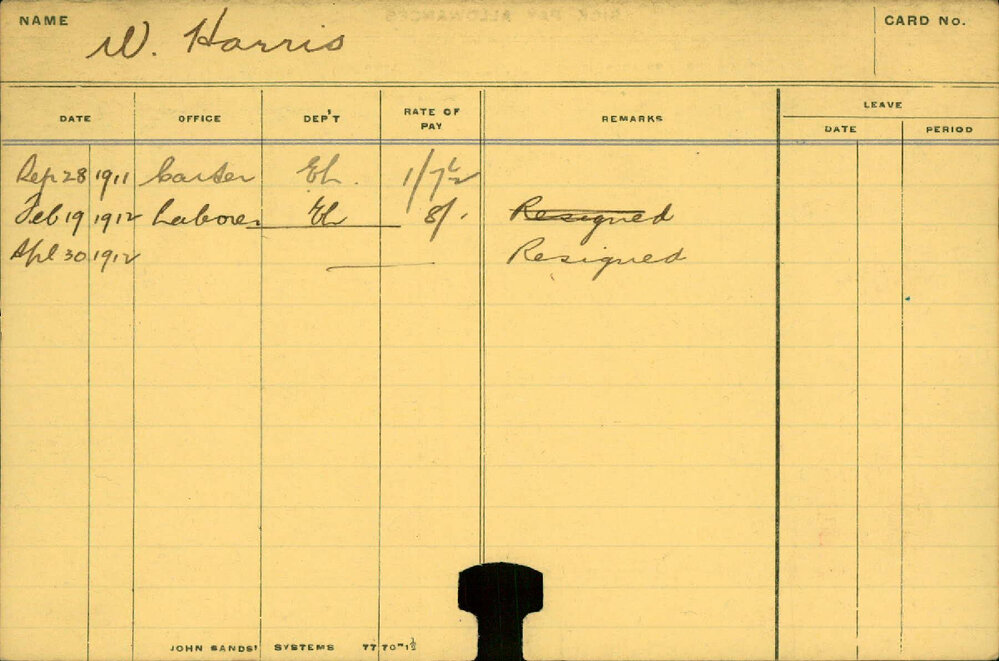 NAME W. Harris CARD No.
LEAVE
DATE OFFICE DEP'T RATE OF PAY REMARKS DATE PERIOD
Sep 28 1911 Carter El. 1/7½
Feb 19 1912 Laborer El 8/. Resigned
Apl 30 1912 Resigned
JOHN SANDS' SYSTEMS